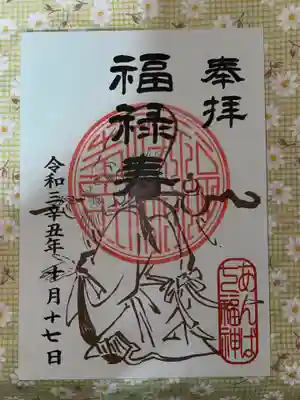 奉拝
福禄寿
令和三辛丑年十月十七日
あんば
七福神